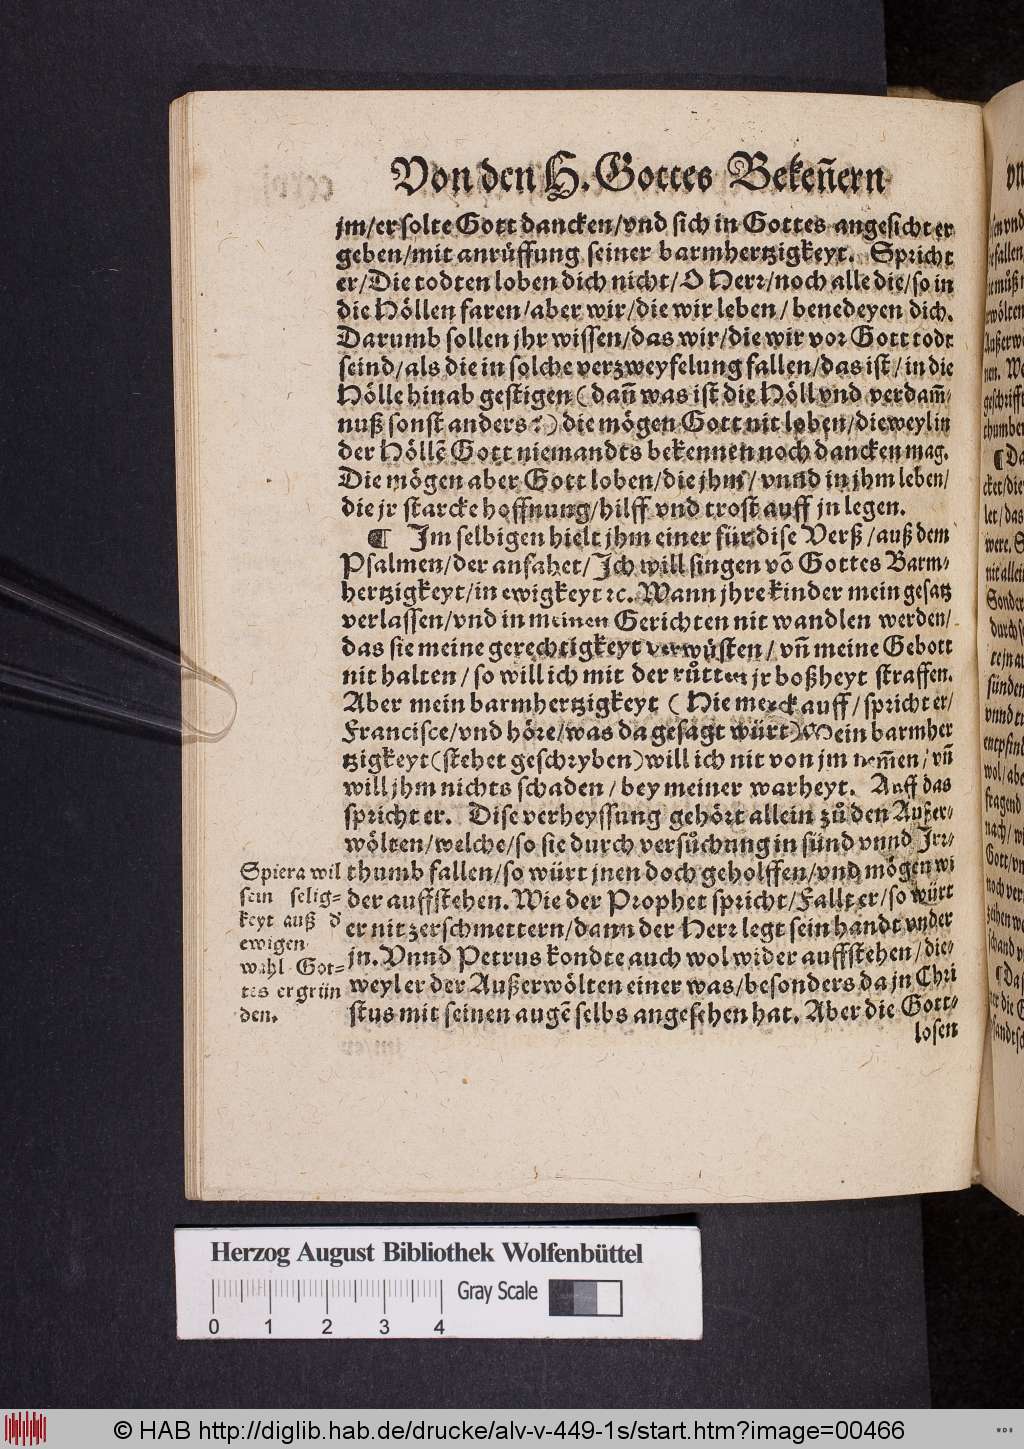 Von den H. Gottes Bekeñern
jm/er solte Gott dancken/vnd sich in Gottes angesicht er
geben/mit anrüffung seiner barmhertzigkeyt. Spricht
er/Die todten loben dich nicht/O Herr/noch alle die/so in
die Höllen faren/aber wir/die wir leben/benedeyen dich.
Darumb sollen jhr wissen/das wir/die wir vor Gott todt
seind/als die in solche verzweyfelung fallen/das ist/in die
Hölle hinab gestigen (dañ was ist die Höll vnd verdam̃-
nuß sonst anders?) die mögen Gott nit loben/dieweyl in
der Höllẽ Gott niemandts bekennen noch dancken mag.
Die mögen aber Gott loben/die jhm/vnnd in jhm leben/
die jr starcke hoffnung/hilff vnd trost auff jn legen.
¶ Im selbigen hielt jhm einer für dise Verß/auß dem
Psalmen/der anfahet/Ich will singen võ Gottes Barm-
hertzigkeyt/in ewigkeyt ꝛc. Wann jhre kinder mein gesatz
verlassen/vnd in meinen Gerichten nit wandlen werden/
das sie meine gerechtigkeyt verwüsten/vñ meine Gebott
nit halten/so will ich mit der růtten jr boßheyt straffen.
Aber mein barmhertzigkeyt (Hie merck auff/spricht er/
Francisce/vnd höre/was da gesagt würt) Mein barmher
tzigkeyt (stehet geschryben) will ich nit von jm nem̃en/vñ
will jhm nichts schaden/bey meiner warheyt. Auff das
spricht er. Dise verheyssung gehört allein zů den Außer-
wölten/welche/so sie durch versůchung in sünd vnnd Irr-
thumb fallen/so würt jnen doch geholffen/vnd mögen wi
der auffstehen. Wie der Prophet spricht/Fallt er/so würt
er nit zerschmettern/dann der Herr legt sein handt vnder
jn. Vnnd Petrus kondte auch wol wider auffstehen/die-
weyl er der Außerwölten einer was/besonders da jn Chri
stus mit seinen augẽ selbs angesehen hat. Aber die Gott-
losen
Spiera wil
sein selig-
keyt auß d'
ewigen
wahl Got-
tes ergrün
den.
Herzog August Bibliothek Wolfenbüttel
Gray Scale
0 1 2 3 4
© HAB http://diglib.hab.de/drucke/alv-v-449-1s/start.htm?image=00466